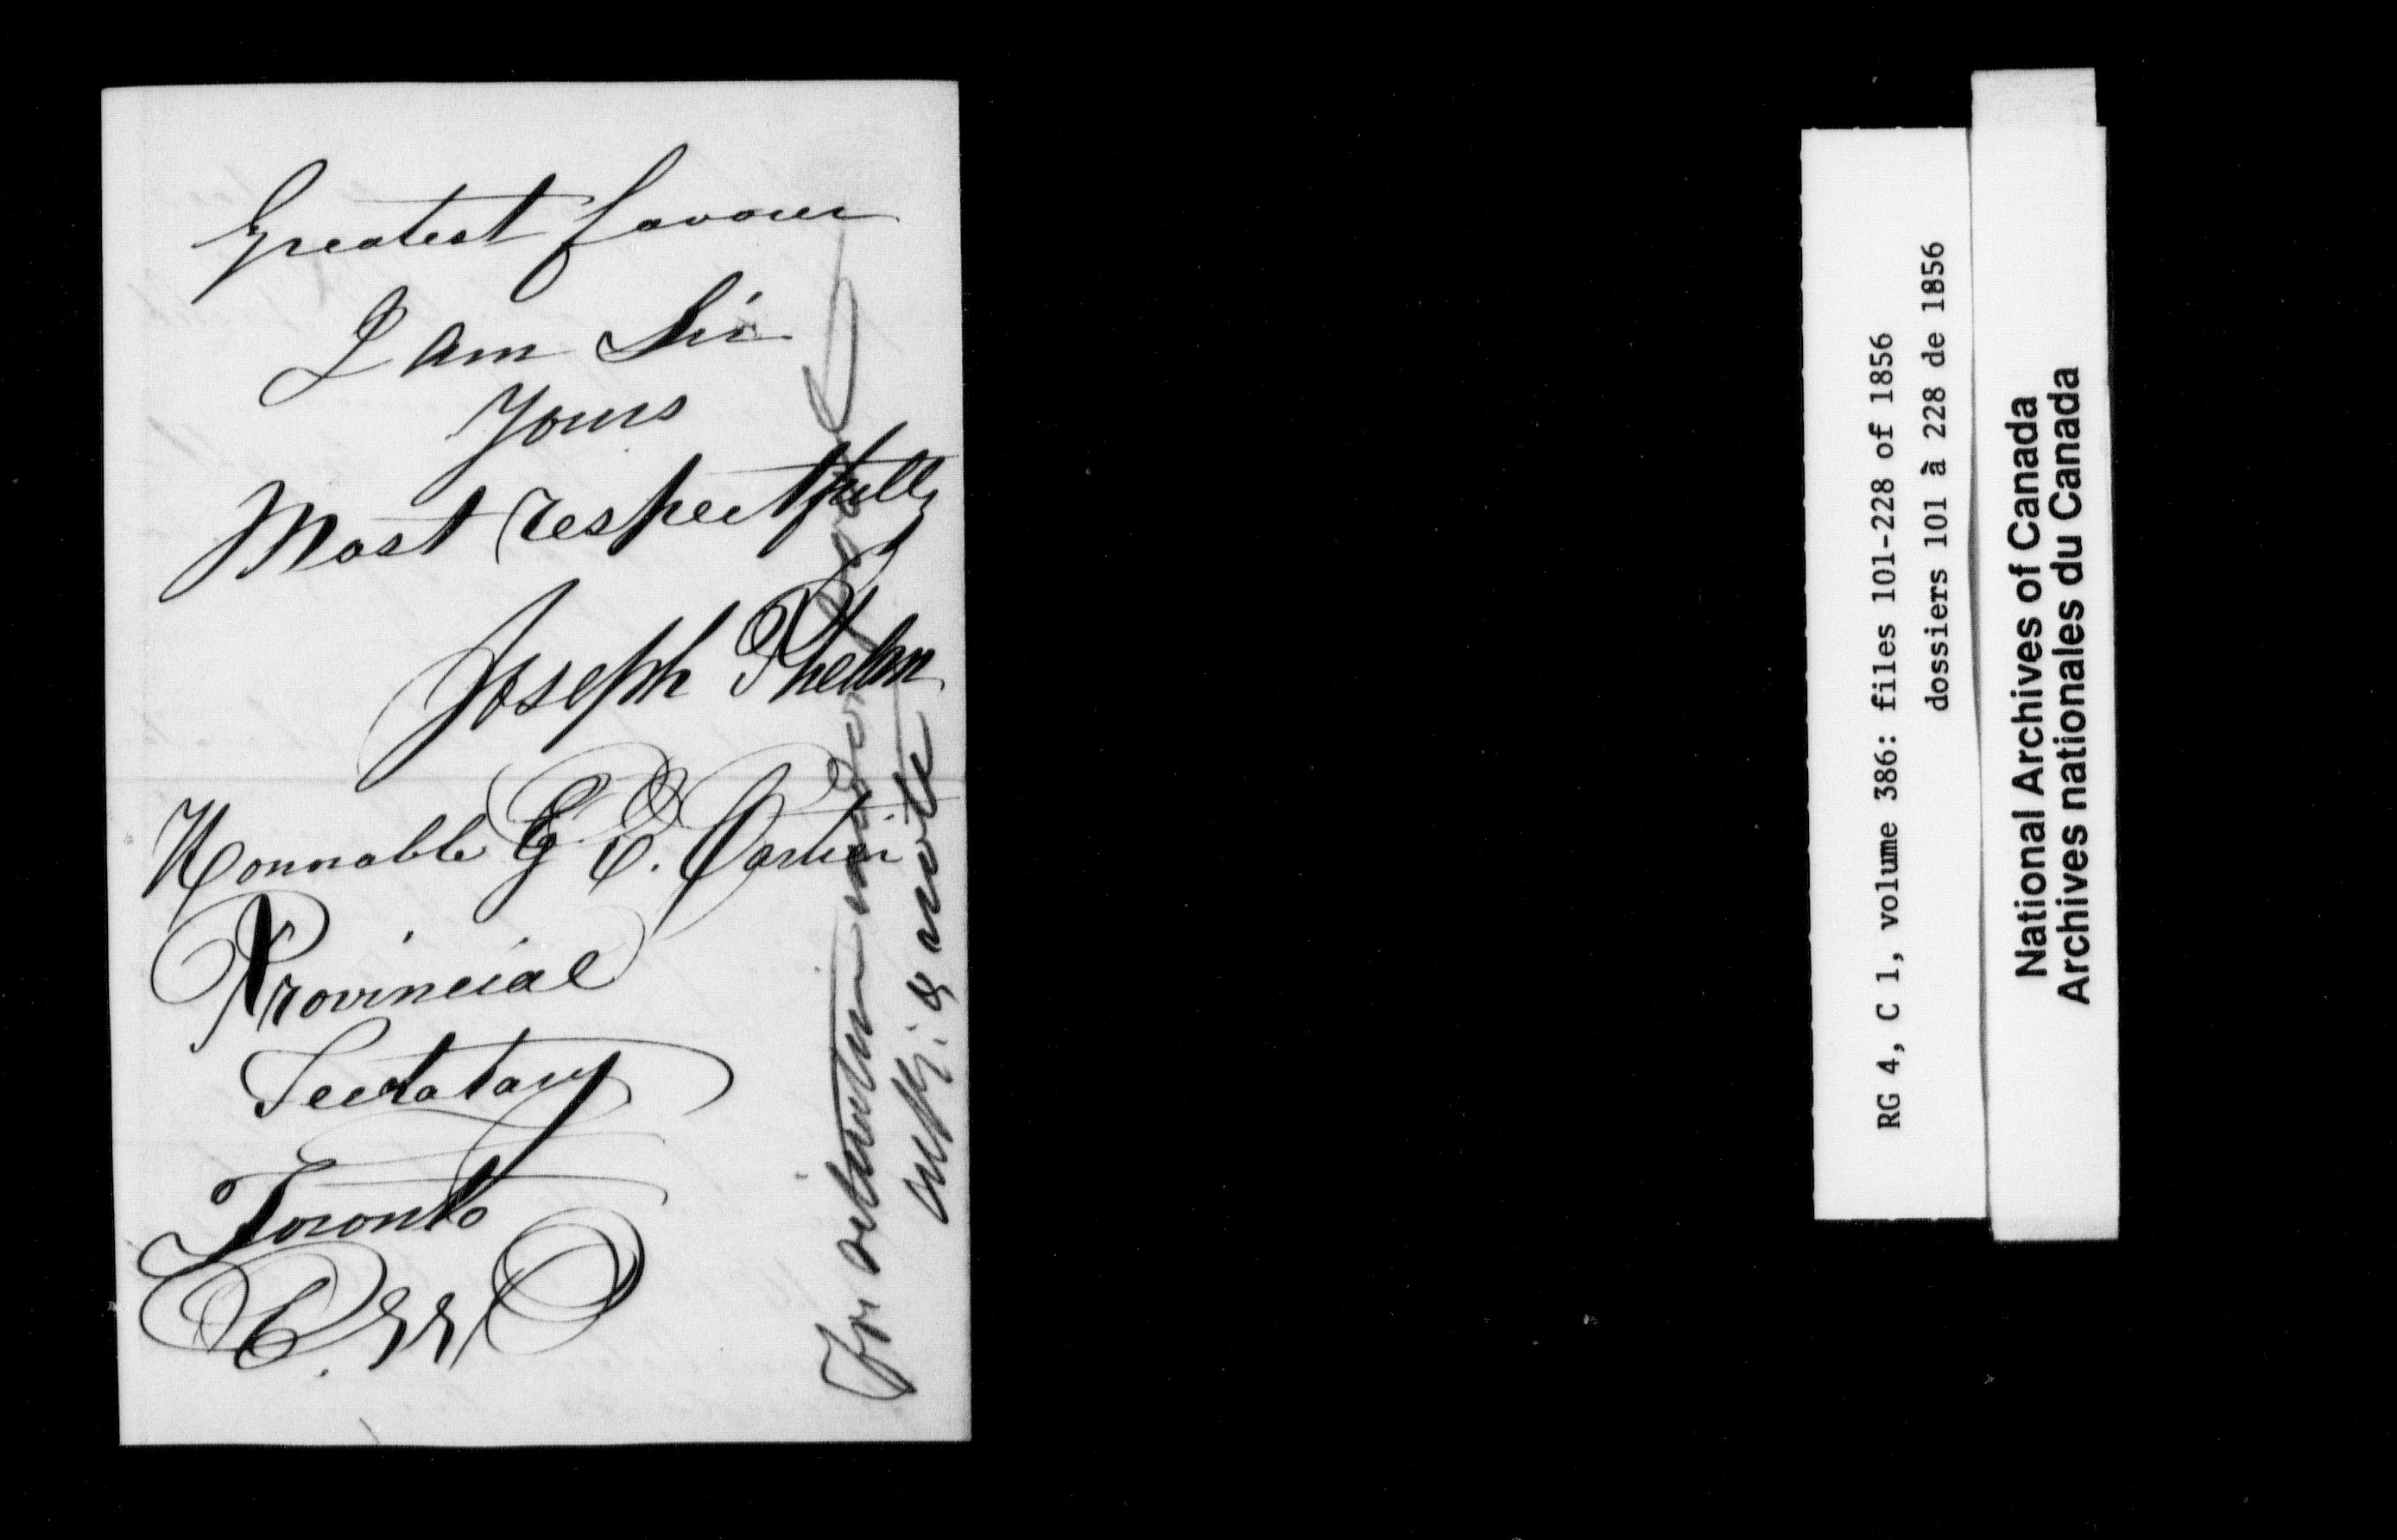 Greatest favour
I am Sir
Yours
Most respectfully
Joseph Phelan
Honnable G E. Cartier
Provincial
Secratary
Toronto
For
& wrote
RG 4, C 1, volume 386: files 101-228 of 1856
dossiers 101 à 228 de 1856
National Archives of Canada
Archives nationales du Canada